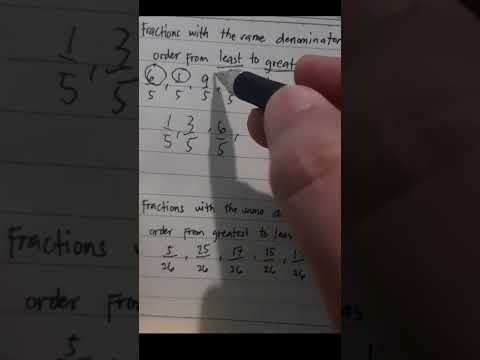 Fractions with the same denominator
order from least to great
6/5, 1/5, 9/5, /5
1/5, 3/5, 6/5,
Fractions with the same d
order from greatest to leas
5/26, 25/26, 17/26, 15/26, 1/26